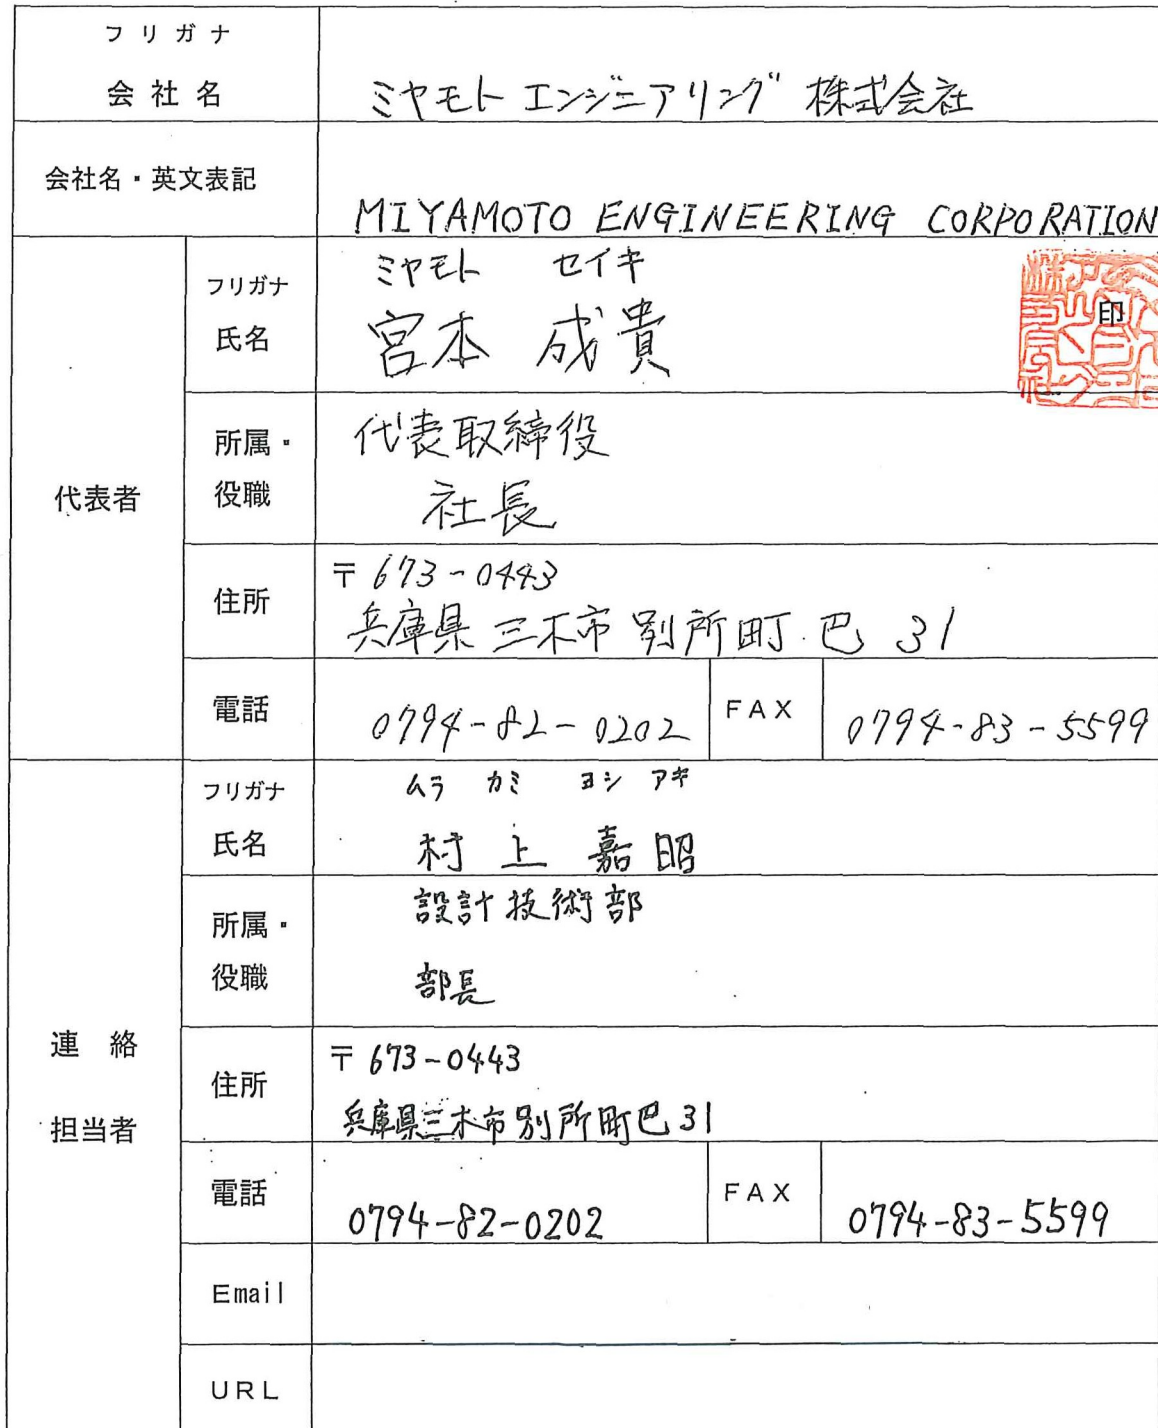 フリガナ
会社名
ミヤモトエンジニアリング 株式会社
会社名・英文表記
MIYAMOTO ENGINEERING CORPORATION
代表者
フリガナ
ミヤモト セイキ
氏名
宮本 成貴
印
所属・
役職
代表取締役
社長
住所
〒673-0443
兵庫県三木市別所町巴 31
電話
0794-82-0202
FAX
0794-83-5599
連絡
担当者
フリガナ
ムラ カミ ヨシ アキ
氏名
村上 嘉昭
所属・
役職
設計技術部
部長
住所
〒673-0443
兵庫県三木市別所町巴31
電話
0794-82-0202
FAX
0794-83-5599
Email
URL